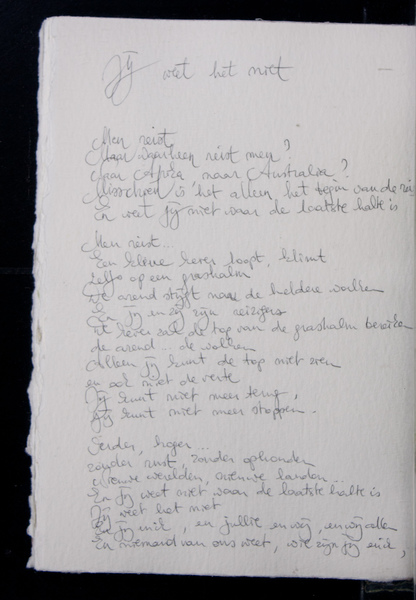 Jij weet het niet
Men reist,
Maar waarheen reist men?
naar Afrika naar Australia?
Misschien is het alleen het begin van de rei
En weet jij niet waar de laatste halte is
Men reist...
Een kleine kever loopt, klimt
zelfs op een grashalm
De arend stijgt naar de heldere wolken
En jij en zij zijn reizigers
de kever zal de top van de grashalm bereiken
de arend... de wolken
Alleen jij kunt de top niet zien
en ook niet de verte
Jij kunt niet meer terug,
jij kunt niet meer stoppen.
Verder, hoger...
zonder rust, zonder ophouden
nieuwe werelden, nieuwe landen...
En jij weet niet waar de laatste halte is
Jij weet het niet
jij en ik, en jullie en wij, en wij allen
En niemand van ons weet, wie zijn jij en ik,